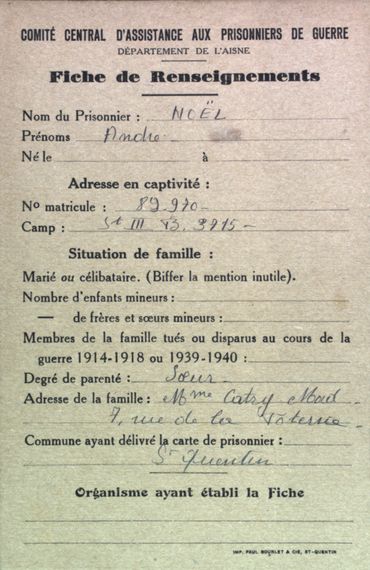 COMITÉ CENTRAL D'ASSISTANCE AUX PRISONNIERS DE GUERRE
DÉPARTEMENT DE L'AISNE
Fiche de Renseignements
Nom du Prisonnier : NOËL
Prénoms André
Né le à
Adresse en captivité :
No matricule : 89 970
Camp : St III B. 3715
Situation de famille :
Marié ou célibataire. (Biffer la mention inutile).
Nombre d'enfants mineurs :
— de frères et sœurs mineurs :
Membres de la famille tués ou disparus au cours de la
guerre 1914-1918 ou 1939-1940 :
Degré de parenté : Sœur
Adresse de la famille : Mme Catry Mad
7, rue de la Poterne
Commune ayant délivré la carte de prisonnier :
St Quentin
Organisme ayant établi la Fiche
IMP. PAUL BOURLET & CIE, ST-QUENTIN